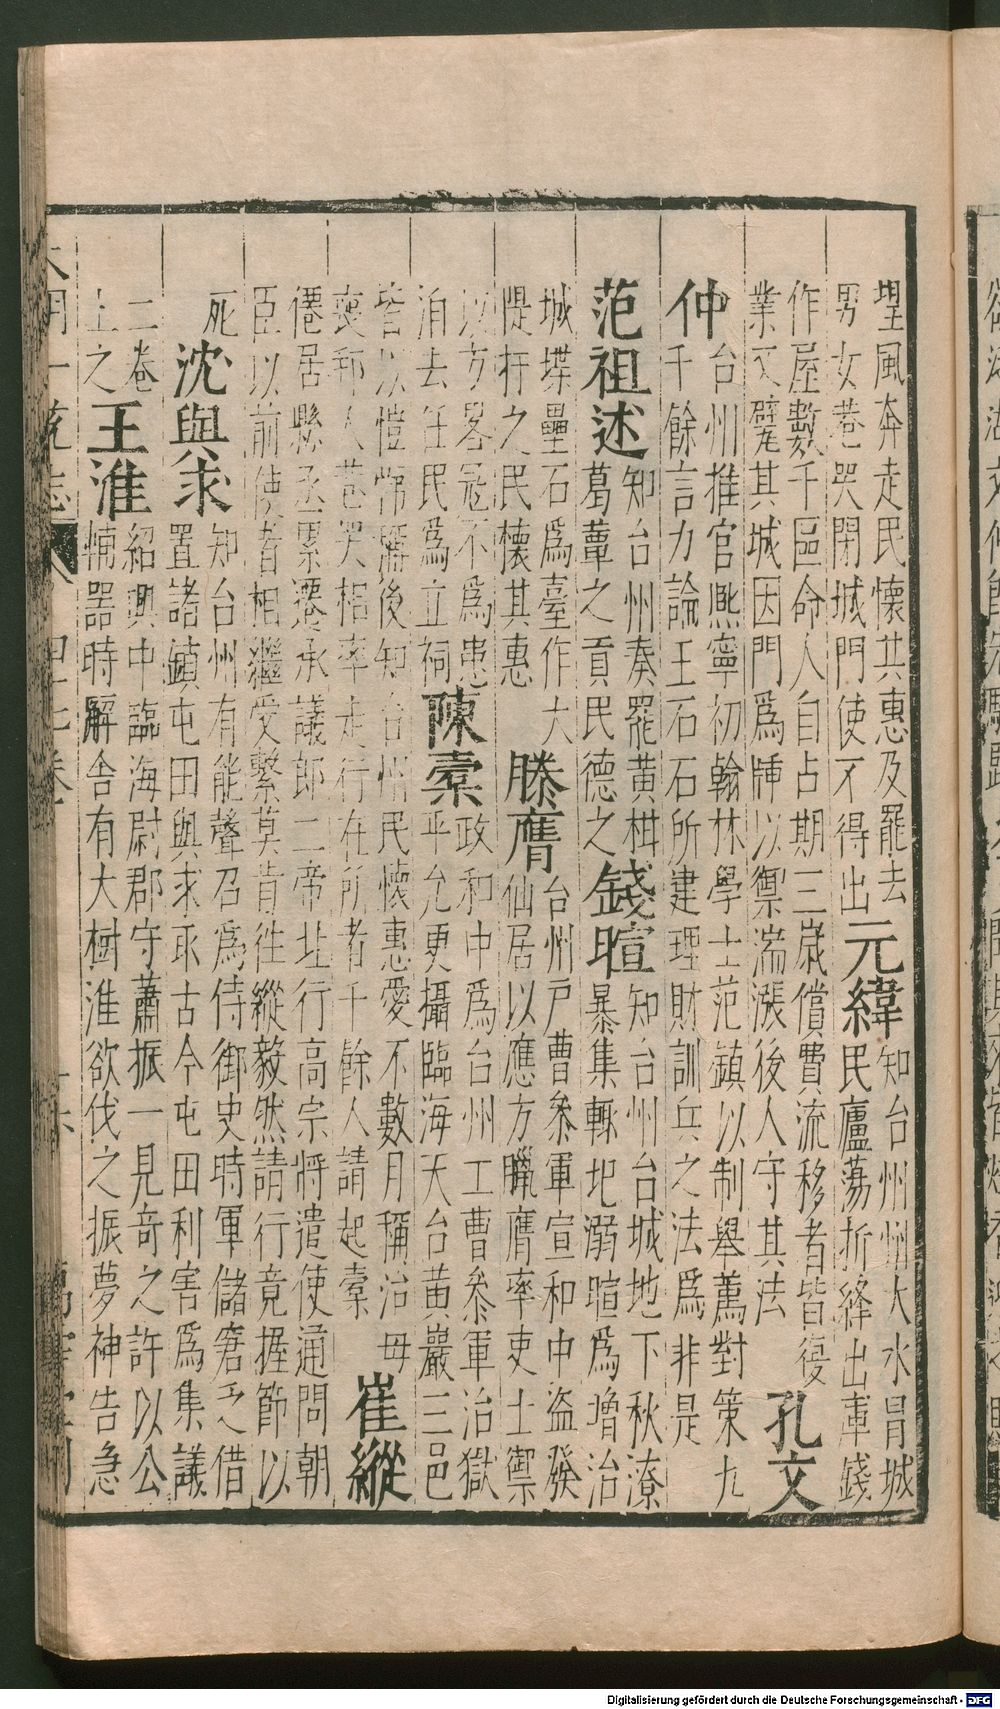 望風奔走民懷其惠及罷去
男女巷哭閉城門使不得出
元緯
知台州州大水冐城
民廬蕩折絳出庫錢
作屋數千區命人自占期三歲償費流移者皆復
業又甓其城因門爲牐以禦湍漲後人守其法
孔文
仲
台州推官熈寧初翰林學士范鎮以制舉薦對策九
千餘言力論王石石所建理財訓兵之法爲非是
范祖述
知台州奏罷黃柑
葛蕈之貢民德之
錢暄
知台州台城地下秋潦
暴集輙圯溺暄爲增治
城堞壘石爲臺作大
隄扞之民懷其惠
滕膺
台州戸曹叅軍宣和中盗發
仙居以應方臘膺率吏士禦
以方畧冦不爲患
洎去任民爲立祠
陳橐
政和中爲台州工曹叅軍治獄
平允更攝臨海天台黄巖三邑
皆以愷悌稱後知台州民懷惠愛不數月稱治毋
喪邦人巷哭相率走行在所者千餘人請起橐
崔縱
僊居縣丞累遷承議郎二帝北行高宗將遣使通問朝
臣以前使者相繼受繫莫肯徃縱毅然請行竟握節以
死
沈與求
知台州有能聲召爲侍御史時軍儲窘乏借
置諸鎮屯田與求取古今屯田利害爲集議
二卷
上之
王淮
紹興中臨海尉郡守蕭振一見奇之許以公
輔器時廨舍有大樹淮欲伐之振夢神告急
大明一統志
Digitalisierung gefördert durch die Deutsche Forschungsgemeinschaft - DFG